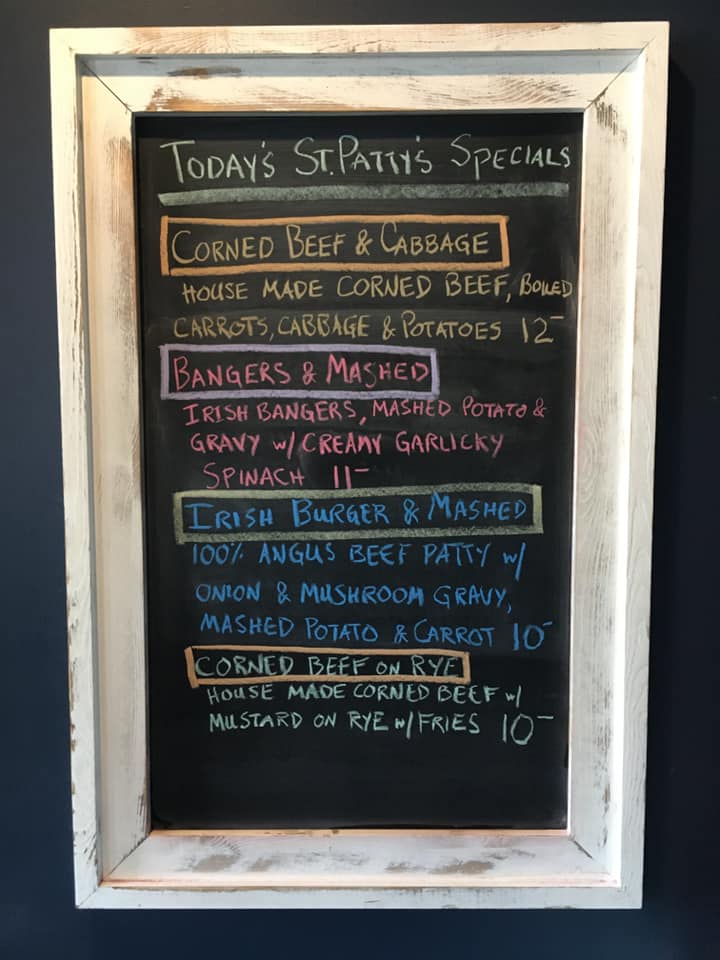 TODAY'S ST. PATTY'S SPECIALS
CORNED BEEF & CABBAGE
HOUSE MADE CORNED BEEF, BOILED
CARROTS, CABBAGE & POTATOES 12-
BANGERS & MASHED
IRISH BANGERS, MASHED POTATO &
GRAVY W/ CREAMY GARLICKY
SPINACH 11-
IRISH BURGER & MASHED
100% ANGUS BEEF PATTY W/
ONION & MUSHROOM GRAVY,
MASHED POTATO & CARROT 10-
CORNED BEEF ON RYE
HOUSE MADE CORNED BEEF W/
MUSTARD ON RYE W/ FRIES 10-